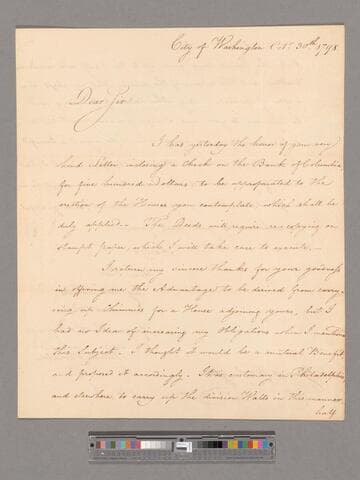 City of Washington Oct. 30th. 1798
Dear Sir
I had yesterday the honor of your very
kind Letter inclosing a Check on the Bank of Columbia,
for five hundred Dollars to be appropriated to the
erection of the House you contemplate which shall be
duly applied.— The Deeds will require re-copying on
stampt paper, which I will take care to execute.—
I return my sincere thanks for your goodness
in offering me the Advantage to be derived from carry-
ing up Chimnies for a House adjoining yours, but I
had no Idea of increasing my Obligations when I mentioned
this Subject. I thought it would be a mutual Benefit
and proposed it accordingly. It is customary in Philadelphia
and elsewhere to carry up the division Walls in this manner
half